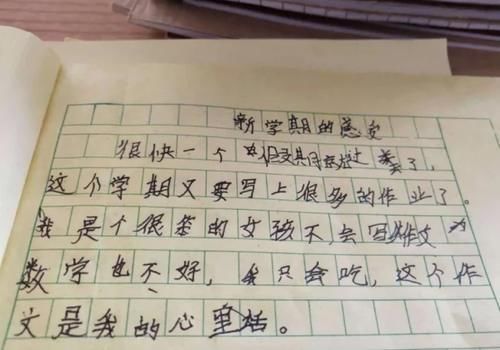 新学期的感受
很快一个假期就过 了,
这个学期又要写上很多的作业了。
我是个很笨的女孩不,会写作文
数学也不好,我只会吃,这个作
文是我的心里话。